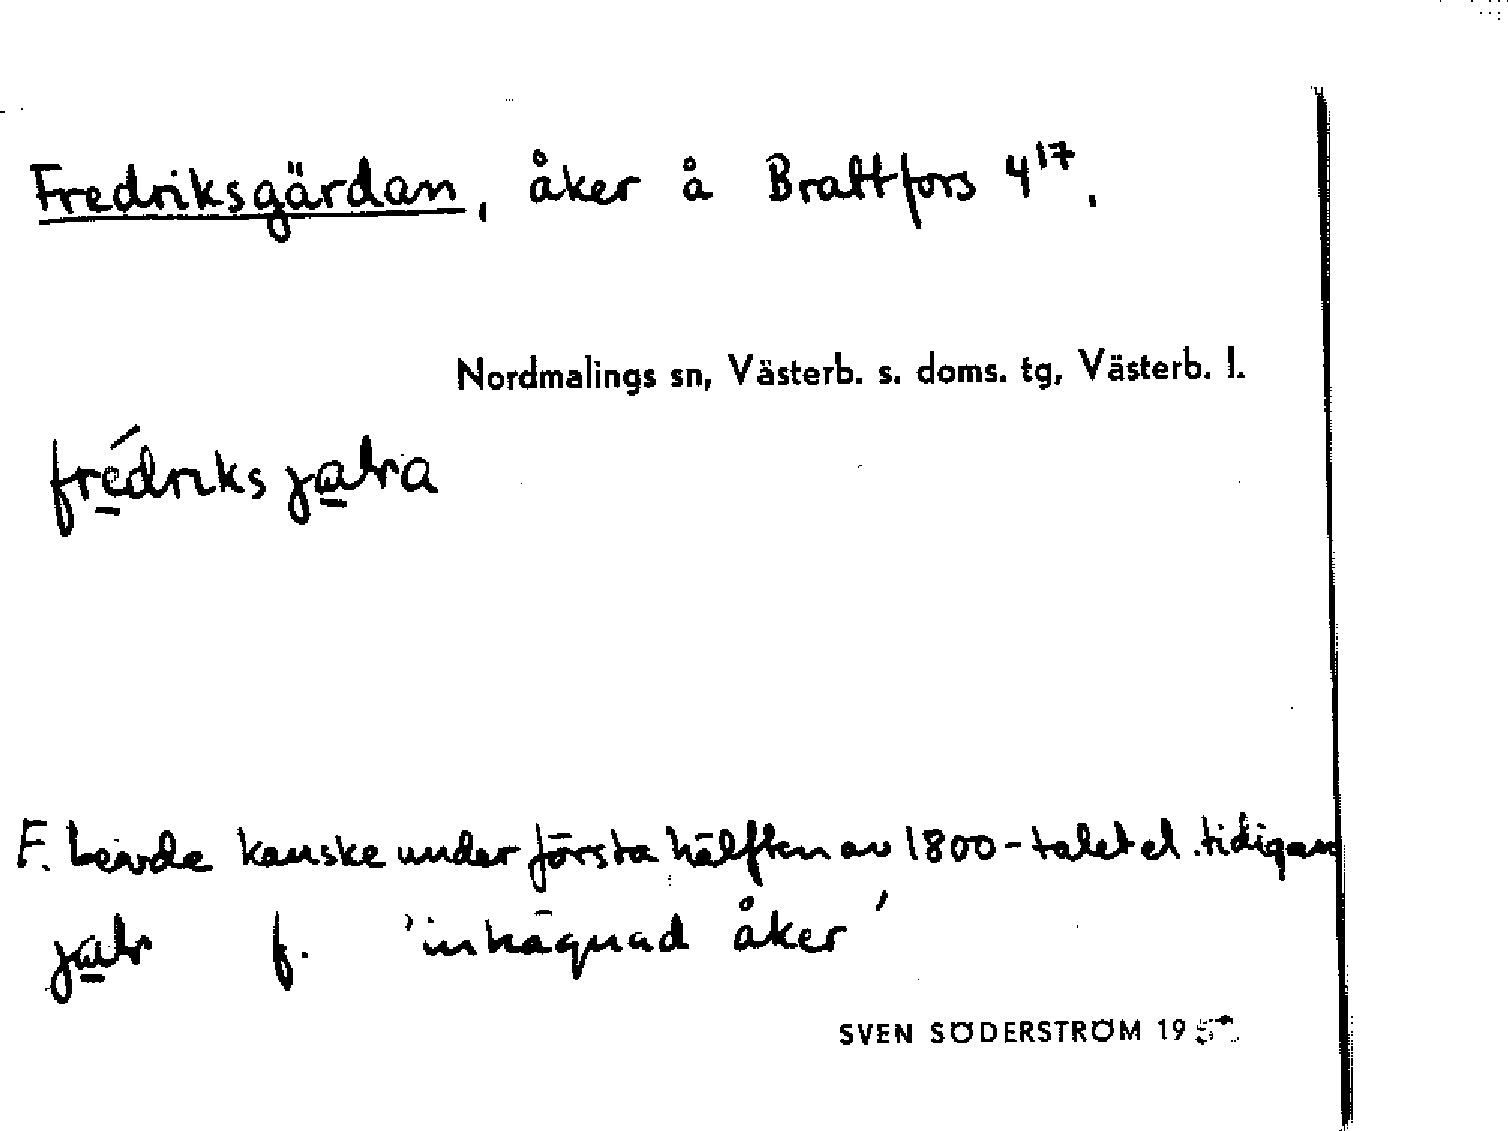 Fredriksgärdan, åker å Brattfors 4¹⁷.
Nordmalings sn, Västerb. s. doms. tg, Västerb. l.
F. levde kanske under första hälften av 1800-talet el. tidigare
f. 'inhägnad åker'
SVEN SÖDERSTRÖM 19